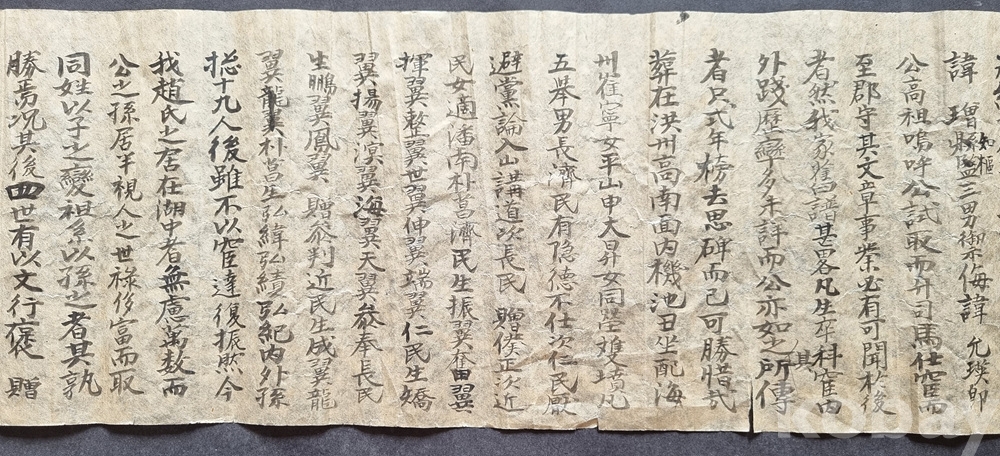 諱 增 知樞 三男御侮諱 允瑛卽
公高祖嗚呼公試取而升司馬仕宦而
至郡守其文章事業必有可聞於後
者然我家舊譜甚畧凡生卒科宦內
外踐歷擧多未詳而公亦如之其所傳
者只式年榜去思碑而已可勝惜哉
葬在洪州高南面內機池丑坐配海
州崔寧女平山申大昇女同塋雙墳凡
五擧男長濟民有隱德不仕次仁民厭
避黨論入山講道次長民 贈僕正次近
民女適潘南朴萬濟民生振翼奮翼
揮翼整翼世翼伸翼端翼仁民生矯
翼揚翼溟翼海翼天翼叅奉長民
生鵬翼鳳翼 贈叅判近民生成翼龍
翼龍業朴萬生弘緯弘績弘紀內外孫
摠十九人後雖不以宦達復振然今
我趙氏之居在湖中者無慮萬數而
公之孫居半視人之世祿侈富而取
同姓以子之變祖系以孫之者其孰
勝焉况其後四世有以文行褒 贈